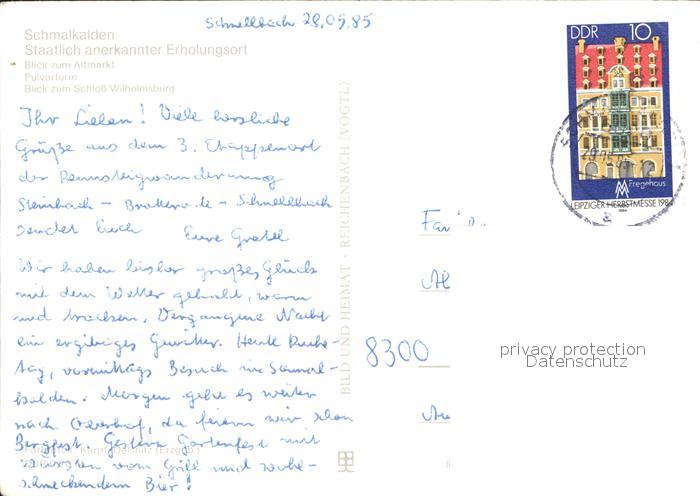 Schnellbach 28.05.85
Schmalkalden
Staatlich anerkannter Erholungsort
Blick zum Altmarkt
Pulverturm
Blick zum Schloß Wilhelmsburg
Ihr Lieben! Viele herzliche
Grüße aus dem 3. Etappenort
der Rennsteigwanderung
Steinbach – Brotterode – Schnellbach
sendet Euch Eure Gretel
Wir haben bisher großes Glück
mit dem Wetter gehabt, warm
und trocken. Vergangene Nacht
ein ergiebiges Gewitter. Heute Ruhe-
tag, vormittags Besuch in Schmal-
kalden. Morgen geht es weiter
nach Oberhof, da feiern wir schon
Bergfest. Gestern Gartenfest mit
vom Grill und wohl-
schmeckendem Bier!
BILD UND HEIMAT · REICHENBACH (VOGTL)
DDR 10
Fregehaus
LEIPZIGER HERBSTMESSE 1984
Fam
8300
privacy protection
Datenschutz